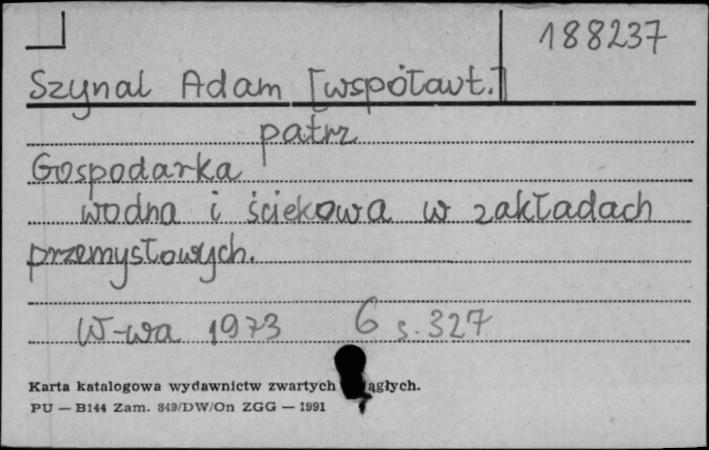 188237
Szynal Adam [współaut.]
patrz
Gospodarka
wodna i ściekowa w zakładach
przemysłowych.
W-wa 1973 6 s. 327
Karta katalogowa wydawnictw zwartych ągłych.
PU — B144 Zam. 849/DW/On ZGG — 1991